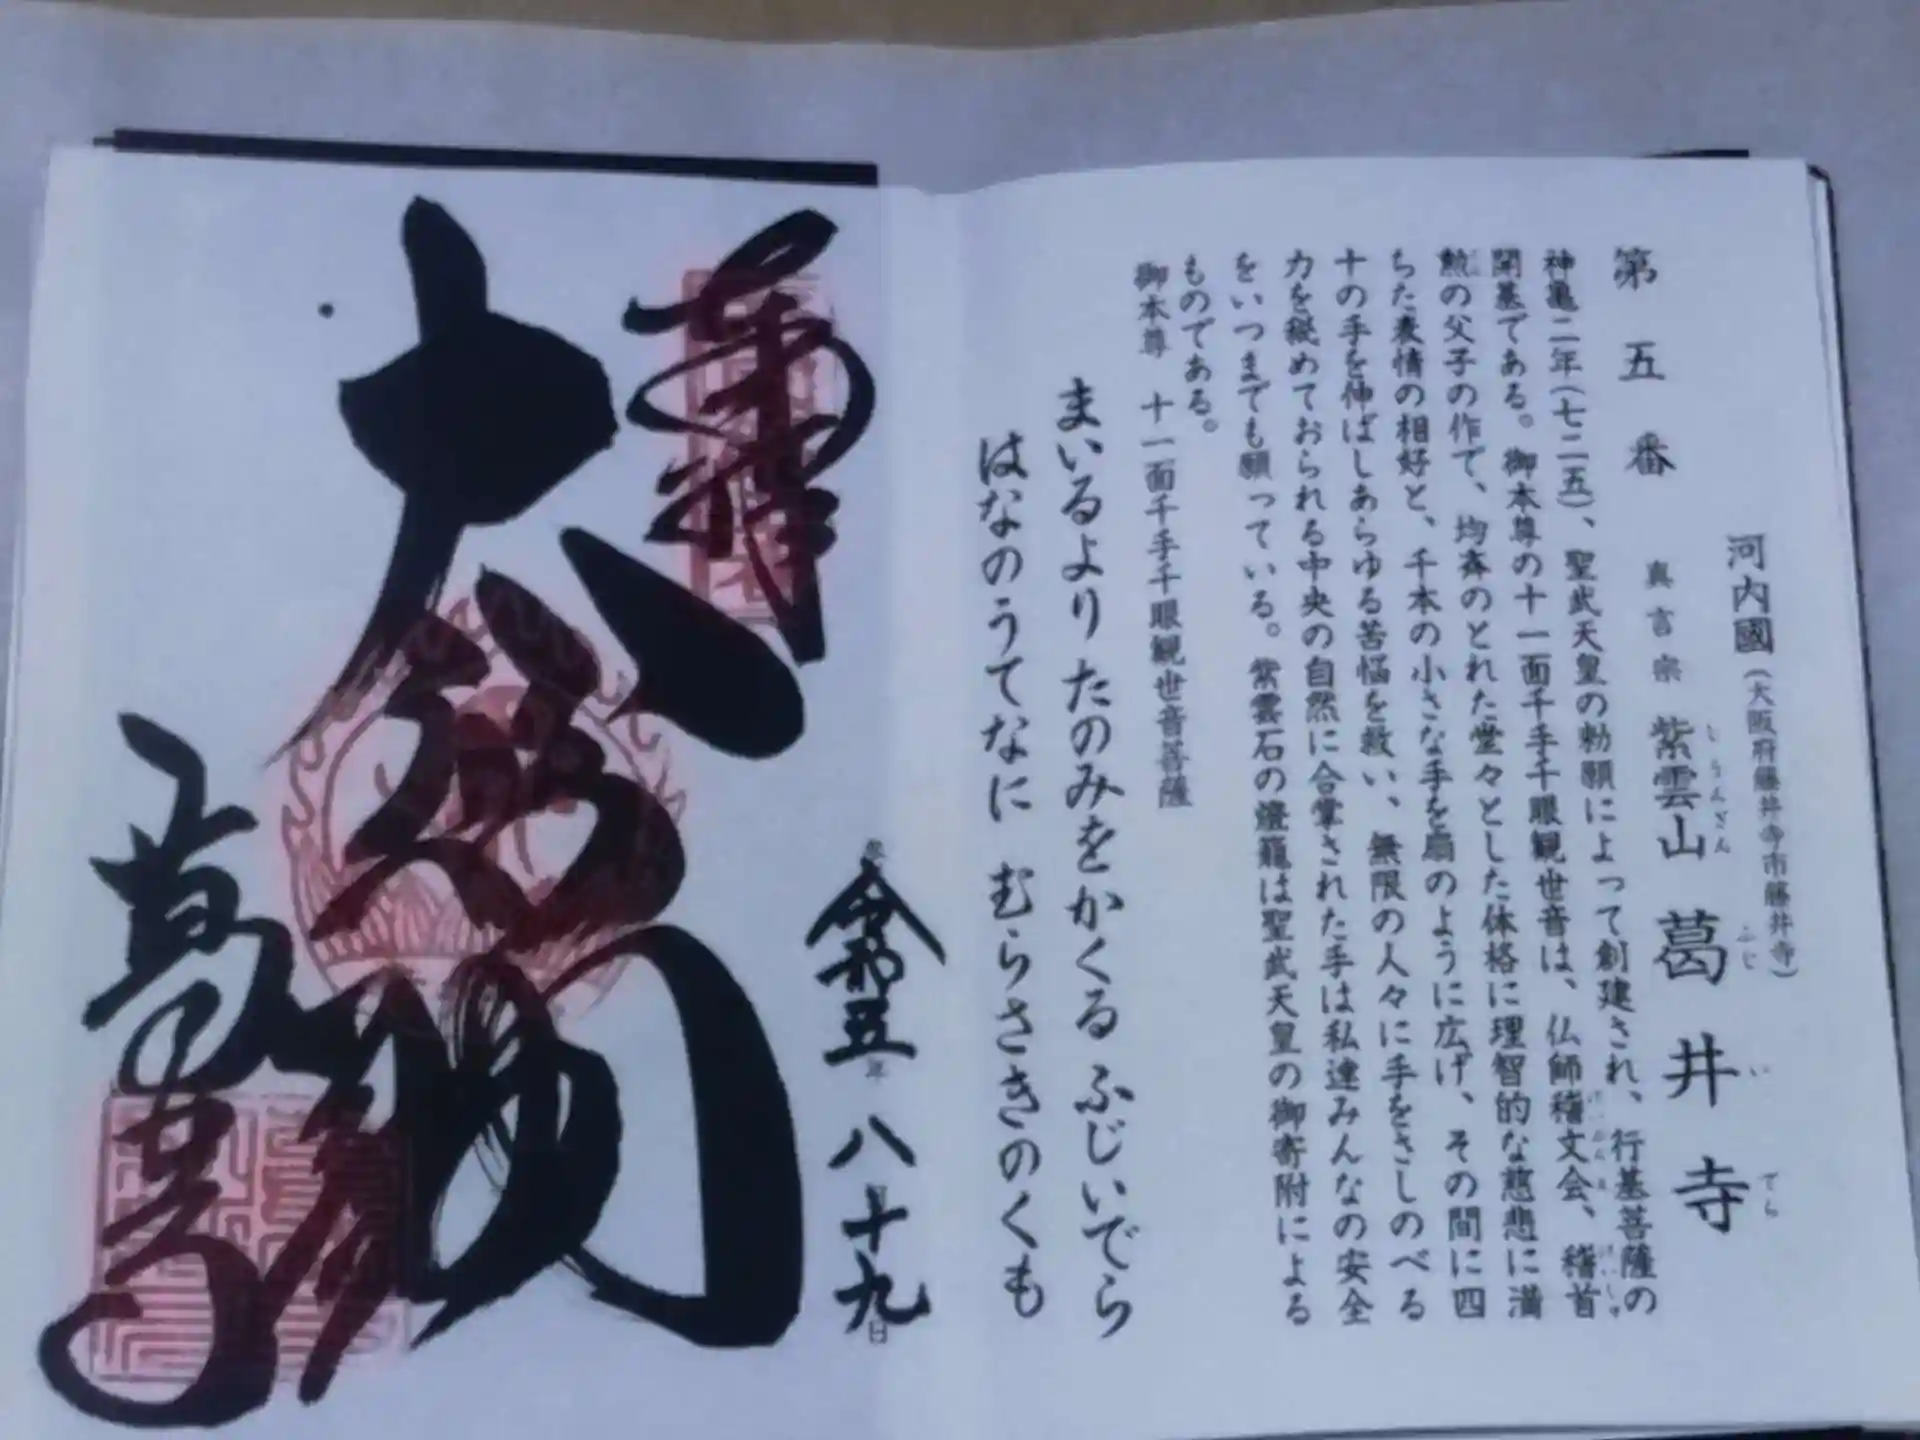 河内國(大阪府藤井寺市藤井寺)
第五番 真言宗 紫雲山 葛井寺
しうんざん ふじいでら
神亀二年(七二五)、聖武天皇の勅願によって創建され、行基菩薩の
開基である。御本尊の十一面千手千眼観世音は、仏師稽文会、稽首
勲の父子の作で、均斉のとれた堂々とした体格に理智的な慈悲に満
ちた表情の相好と、千本の小さな手を扇のように広げ、その間に四
十の手を伸ばしあらゆる苦悩を救い、無限の人々に手をさしのべる
力を秘めておられる中央の自然に合掌された手は私達みんなの安全
をいつまでも願っている。紫雲石の燈籠は聖武天皇の御寄附による
ものである。
御本尊 十一面千手千眼観世音菩薩
まいるより たのみをかくる ふじいでら
はなのうてなに むらさきのくも
奉拝
令和五年 八月十九日
大悲閣
葛井寺